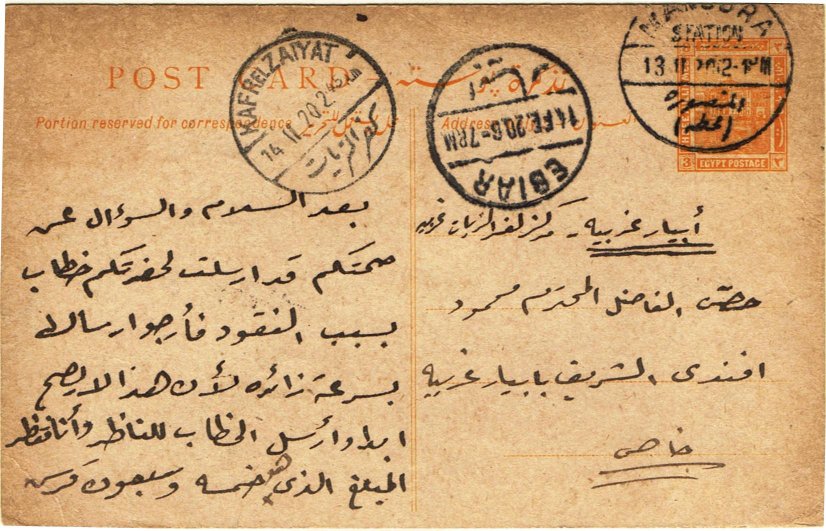 POST CARD — تذكرة بوستة
Portion reserved for correspondence
Address
KAFR EL ZAIYAT
14 II 20.2
كفر الزيات
EBIAR
14 FE 20.6-7 PM
MANSURA
STATION
13 II 20.2- PM
المنصورة
3 EGYPT POSTAGE ٣
بعد السلام والسؤال عن
صحتكم قد ارسلت لحضرتكم خطاب
بسبب النقود فأرجو ارسالها
بسرعة زائده لأن هذا لا يصح
ابدا وارسل الخطاب للناظر وأنا منتظر
المبلغ الذى هو خمسه وسبعون قرش
أبيار غربيه. مركز كفر الزيات غربيه
حضرة الفاضل المحترم محمود
افندى الشريف بابيار غربيه
خاص